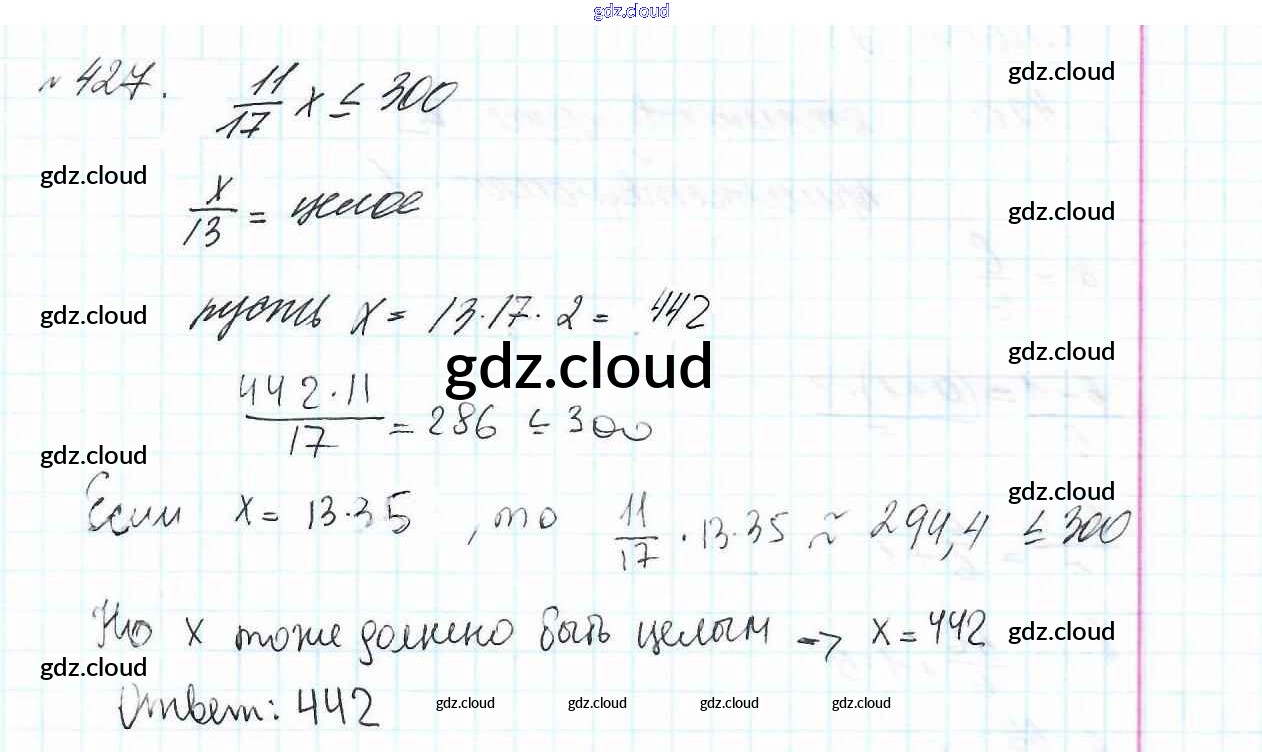 gdz.cloud
№ 427. 11/17 x ≤ 300
gdz.cloud
gdz.cloud
x/13 = целое
gdz.cloud
gdz.cloud
пусть x = 13·17·2 = 442
gdz.cloud
gdz.cloud
442·11/17 = 286 ≤ 300
gdz.cloud
Если x = 13·35, то 11/17 · 13·35 ≈ 294,4 ≤ 300
gdz.cloud
Но x тоже должно быть целым -> x = 442
gdz.cloud
gdz.cloud
Ответ: 442
gdz.cloud gdz.cloud gdz.cloud gdz.cloud